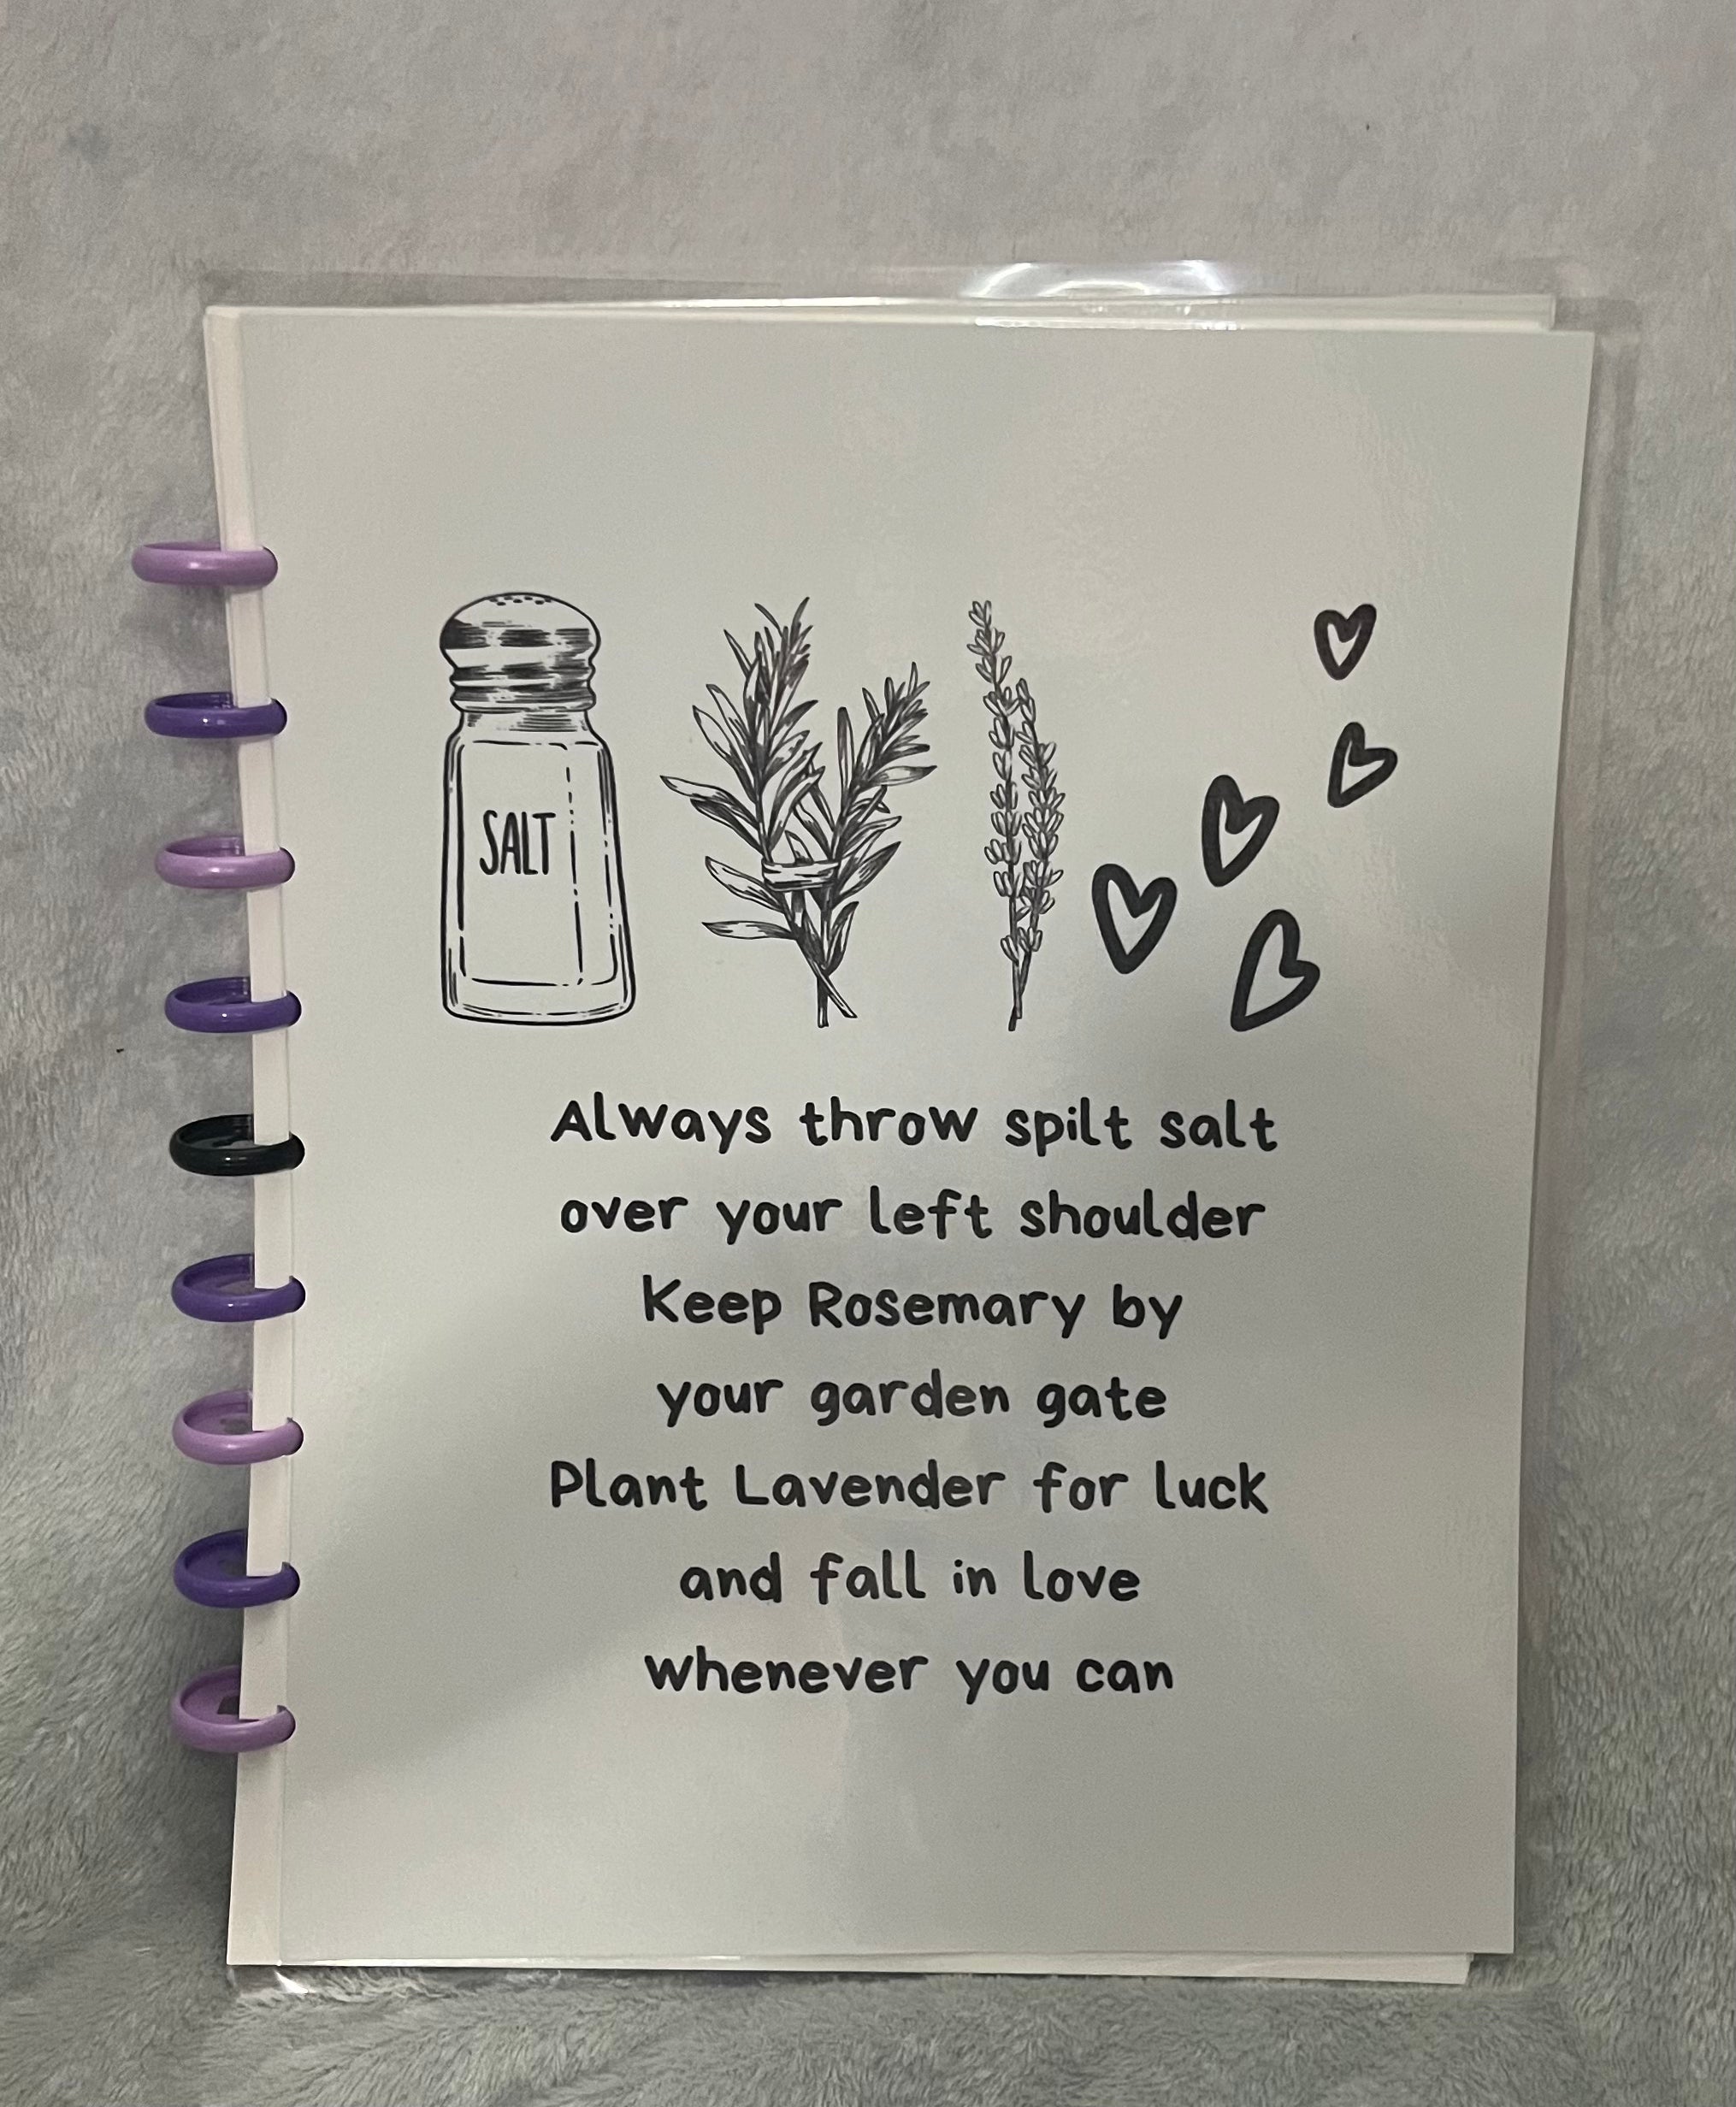 SALT
Always throw spilt salt
over your left shoulder
Keep Rosemary by
your garden gate
Plant Lavender for luck
and fall in love
whenever you can